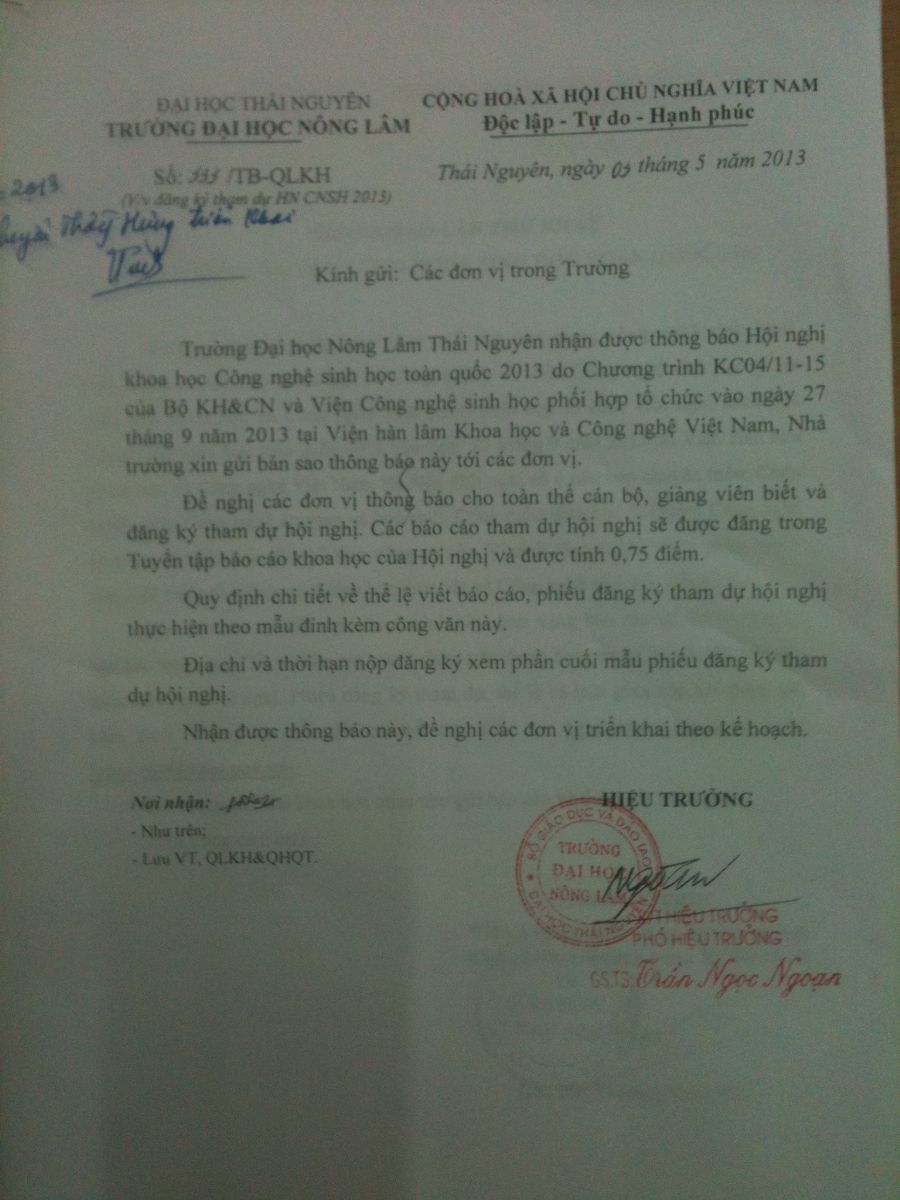 ĐẠI HỌC THÁI NGUYÊN
TRƯỜNG ĐẠI HỌC NÔNG LÂM
CỘNG HOÀ XÃ HỘI CHỦ NGHĨA VIỆT NAM
Độc lập - Tự do - Hạnh phúc
Số: 333 /TB-QLKH
(V/v đăng ký tham dự HN CNSH 2013)
Thái Nguyên, ngày 03 tháng 5 năm 2013
2013
Thầy Hùng triển khai
Kính gửi: Các đơn vị trong Trường
Trường Đại học Nông Lâm Thái Nguyên nhận được thông báo Hội nghị
khoa học Công nghệ sinh học toàn quốc 2013 do Chương trình KC04/11-15
của Bộ KH&CN và Viện Công nghệ sinh học phối hợp tổ chức vào ngày 27
tháng 9 năm 2013 tại Viện hàn lâm Khoa học và Công nghệ Việt Nam, Nhà
trường xin gửi bản sao thông báo này tới các đơn vị.
Đề nghị các đơn vị thông báo cho toàn thể cán bộ, giảng viên biết và
đăng ký tham dự hội nghị. Các báo cáo tham dự hội nghị sẽ được đăng trong
Tuyển tập báo cáo khoa học của Hội nghị và được tính 0,75 điểm.
Quy định chi tiết về thể lệ viết báo cáo, phiếu đăng ký tham dự hội nghị
thực hiện theo mẫu đính kèm công văn này.
Địa chỉ và thời hạn nộp đăng ký xem phần cuối mẫu phiếu đăng ký tham
dự hội nghị.
Nhận được thông báo này, đề nghị các đơn vị triển khai theo kế hoạch.
Nơi nhận:
- Như trên;
- Lưu VT, QLKH&QHQT.
HIỆU TRƯỞNG
BỘ GIÁO DỤC VÀ ĐÀO TẠO
TRƯỜNG
ĐẠI HỌC
NÔNG LÂM
ĐẠI HỌC THÁI NGUYÊN
KT.HIỆU TRƯỞNG
PHÓ HIỆU TRƯỞNG
GS.TS. Trần Ngọc Ngoạn